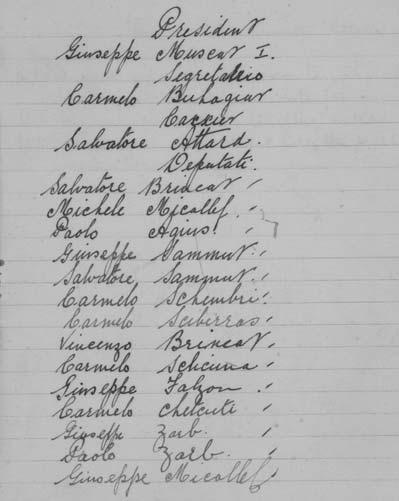 President
Giuseppe Muscat I.
Segretario
Carmelo Buhagiar
Caxxier
Salvatore Attard.
Deputati.
Salvatore Brincat
Michele Micallef
Paolo Agius
Giuseppe Sammut
Salvatore Sammut
Carmelo Schembri
Carmelo Scibirras
Vincenzo Brincat
Carmelo Scicluna
Giuseppe Falzon
Carmelo Chetcuti
Giuseppe Zarb
Paolo Zarb.
Giuseppe Micallef